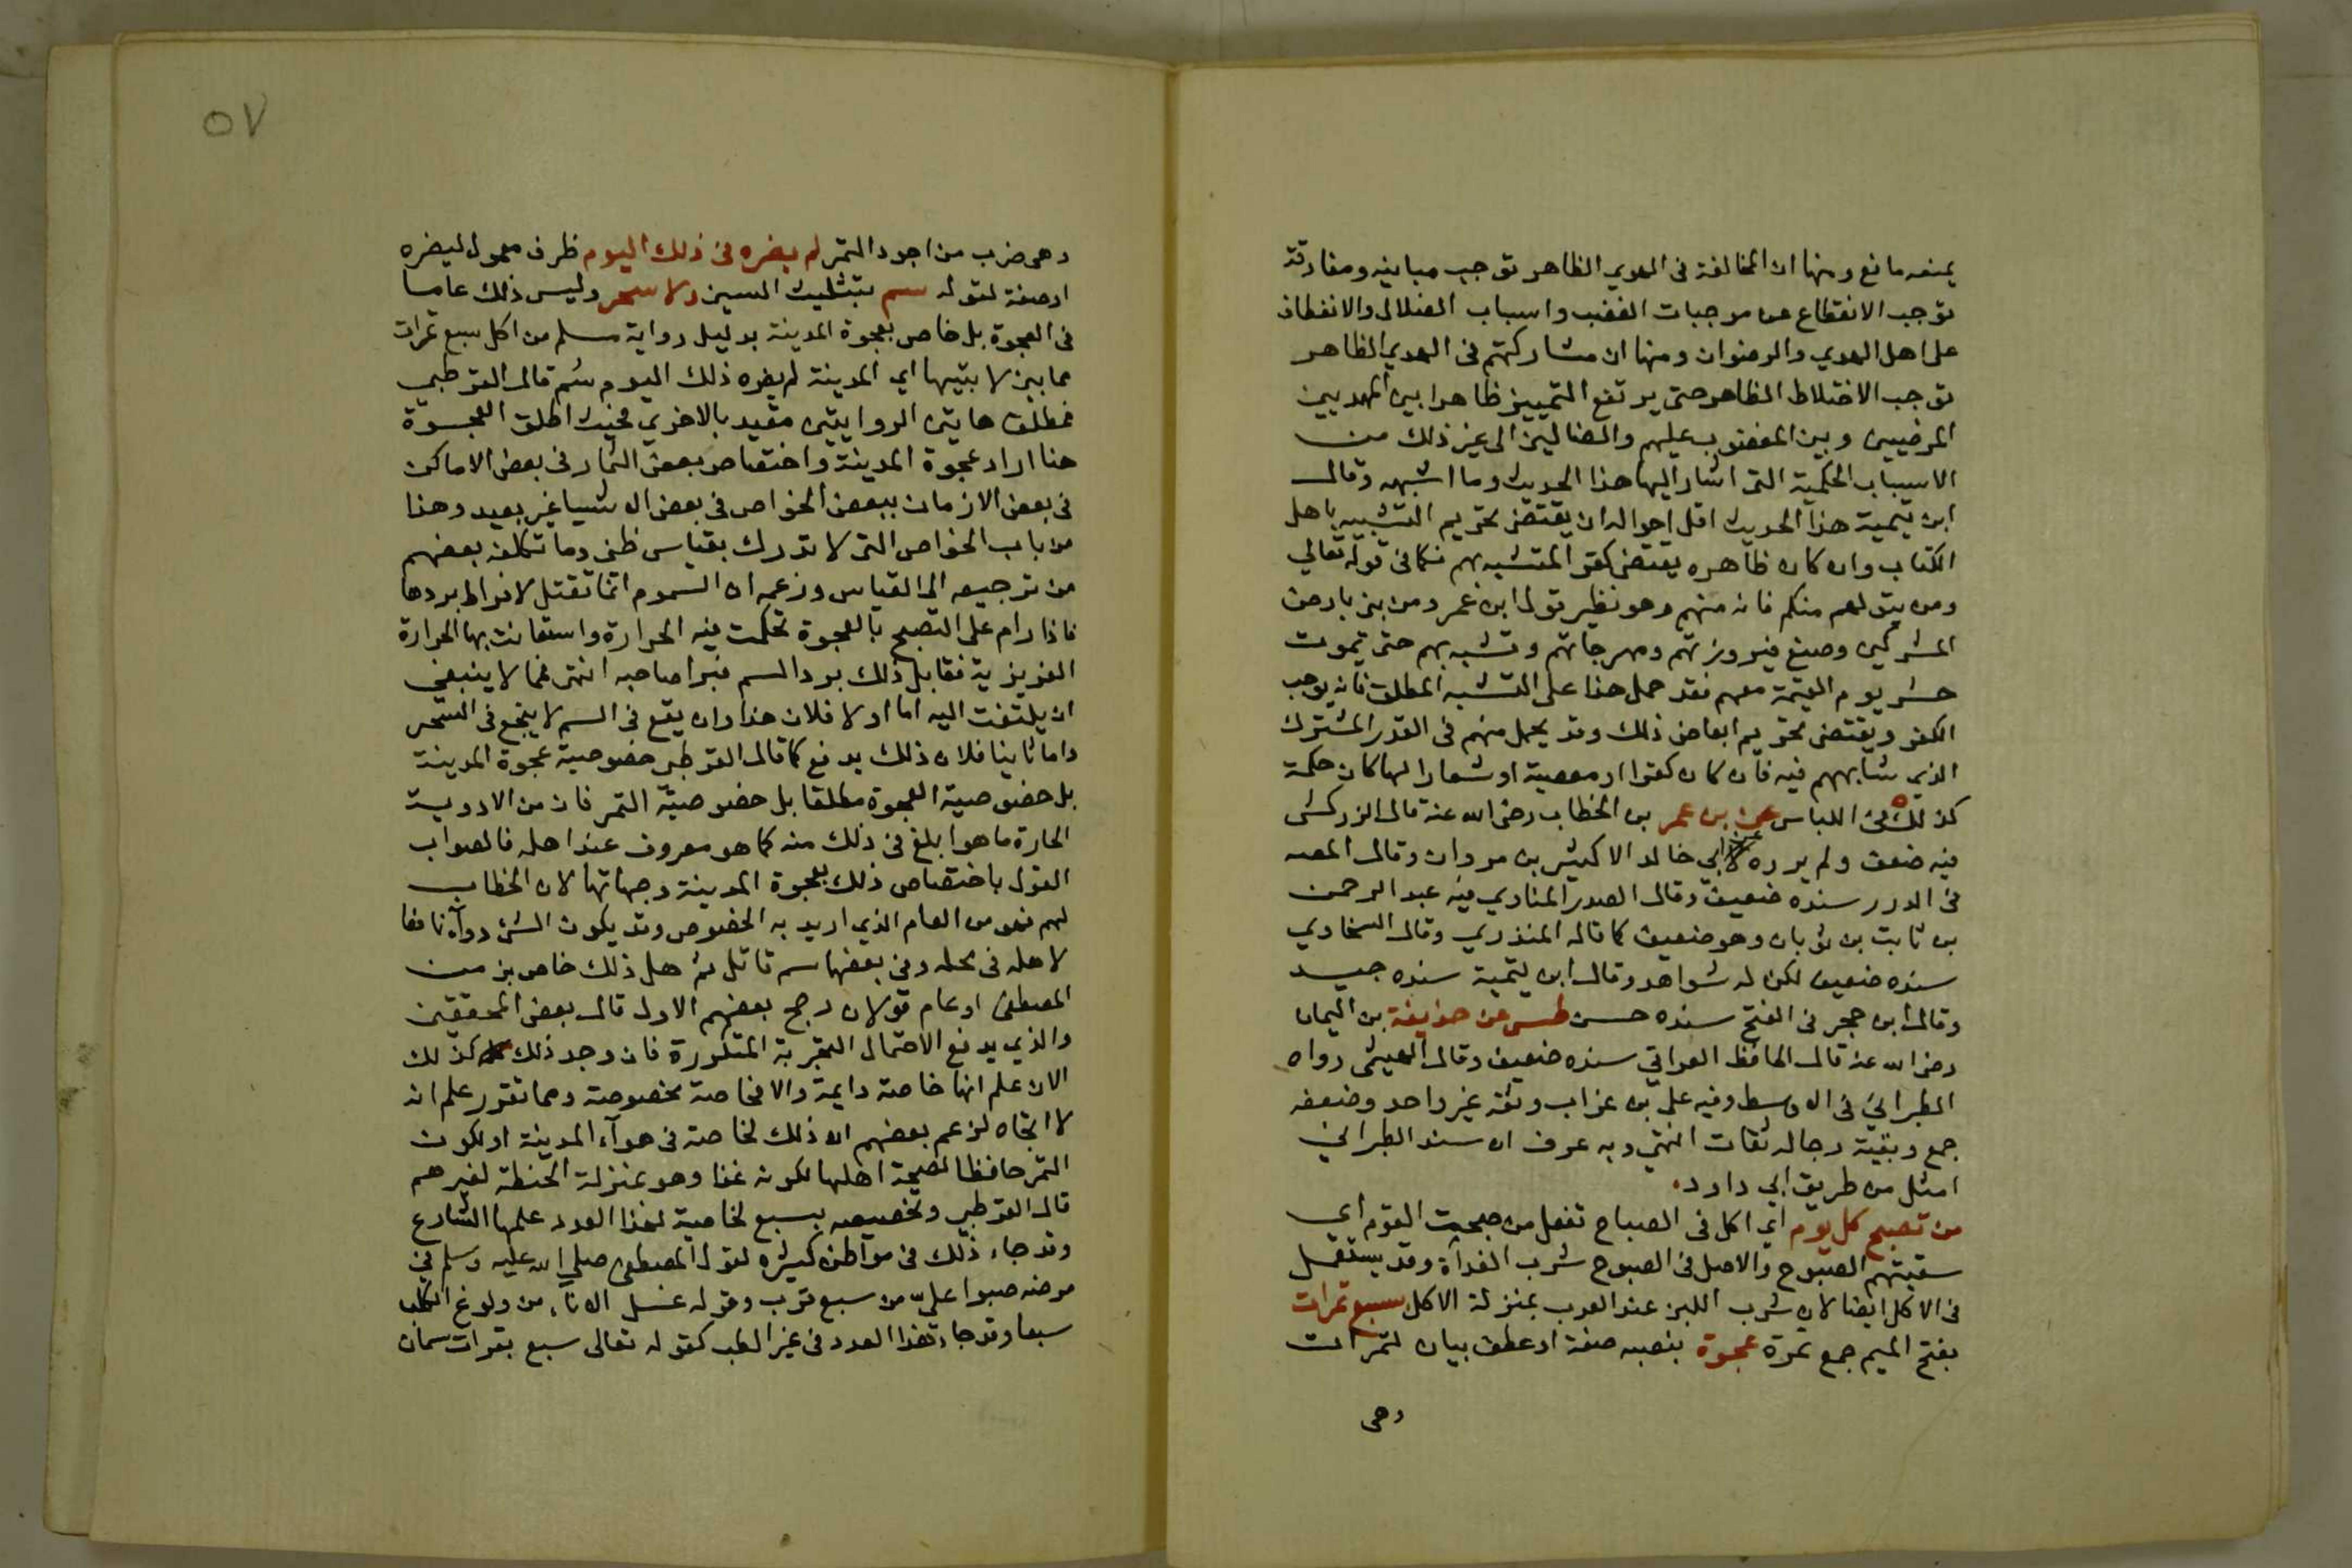 يمنعه مانع ومنها ان المخالفة في الهدي الظاهر توجب مباينه ومفارقة
توجب الانقطاع عن موجبات الغضب واسباب الضلال والانعطاف
على اهل الهدي والرضوان ومنها ان مشاركتهم في الهدي الظاهر
توجب الاختلاط الظاهر حتى يرتفع التمييز ظاهرا بين المهديين
المرضيين وبين المغضوب عليهم والضالين الى غير ذلك من
الاسباب الحكمية التي اشار اليها هذا الحديث وما اشبهه وقال
ابن تيمية هذا الحديث اقل احواله ان يقتضي تحريم التشبيه باهل
الكتاب وان كان ظاهره يقتضي كفر المتشبه بهم فكما في قوله تعالى
ومن يتولهم منكم فانه منهم وهو نظير قول ابن عمر ومن بني بارض
المشركين وصنع فيروزتهم ومهرجاتهم وتشبه بهم حتى تموت
حشر يوم القيمة معهم فقد حمل هذا على التشبه المطلق فانه يوجب
الكفر ويقتضي تحريم ابعاض ذلك وقد يحمل منهم في القدر المشترك
الذي شابههم فيه فان كان كفرا او معصية او شعارا لها كان حكمه
كذلك ه في اللباس عن بن عمر بن الخطاب رضي الله عنه قال الزركشي
فيه ضعف ولم يروه عن ابي خالد الا كثير بن مروان وقال المصـ
في الدرر سنده ضعيف وقال الصدر المناوي فيه عبد الرحمن
بن ثابت بن ثوبان وهو ضعيف كما قاله المنذري وقال السخاوي
سنده ضعيف لكن له شواهد وقال ابن تيمية سنده جيد
وقال ابن حجر في الفتح سنده حسن طس عن حذيفة بن اليمان
رضي الله عنه قال الحافظ العراقي سنده ضعيف وقال الهيثمي رواه
الطبراني في الاوسط وفيه علي بن غراب وثقه غير واحد وضعفه
جمع وبقية رجاله ثقات انتهي وبه عرف ان سند الطبراني
امثل من طريق ابي داود.
من تصبح كل يوم اي اكل في الصباح تفعل من صبحت القوم اي
سقيتهم الصبوح والاصل في الصبوح شرب الغداة وقد يستعمل
في الاكل ايضا لان شرب اللبن عند العرب بمنزلة الاكل سبع تمرات
بفتح الميم جمع تمرة عجوة بنصبه صفة او عطف بيان لتمرات
وهي
٥٧
وهي ضرب من اجود التمر لم يضره في ذلك اليوم ظرف معمول ليضره
او صفة لقوله سم بتثليث السين ولا سحر وليس ذلك عاما
في العجوة بل خاص بعجوة المدينة بدليل رواية مسلم من اكل سبع تمرات
مما بين لابتيها اي المدينة لم يضره ذلك اليوم سم قال القرطبي
فمطلق هاتين الروايتين مقيد بالاخرى فحيث اطلق العجوة
هنا اراد عجوة المدينة واختصاص بعض الثمار في بعض الاماكن
في بعض الازمان ببعض الخواص في بعض الاشيا غير بعيد وهذا
من باب الخواص التي لا تدرك بقياس ظني وما تكلفه بعضهم
من ترجيعه الى القياس وزعمه ان السموم انما تقتل لافراط بردها
فاذا دام على التصبح بالعجوة تحكمت فيه الحرارة واستعانت بها الحرارة
الغريزية فقابل ذلك برد السم فبرا صاحبه انتهى فمما لا ينبغي
ان يلتفت اليه اما اولا فلان هذا وان يقع في السم لا ينجع في السحر
واما ثانيا فلان ذلك يدفع كما قال القرطبي خصوصية عجوة المدينة
بل خصوصية العجوة مطلقا بل خصوصيّة التمر فان من الادوية
الحارة ما هو ابلغ في ذلك منه كما هو معروف عند اهله فالصواب
القول باختصاص ذلك بعجوة المدينة وجهاتها لان الخطاب
لهم فهو من العام الذي اريد به الخصوص وقد يكون الشئ دواء نافعا
لاهله في محله وفي بعضها سم قاتل ثم هل ذلك خاص بزمن
المصطفى او عام قولان رجح بعضهم الاول قال بعض المحققين
والذي يدفع الاحتمال التجربة المتكررة فان وجد ذلك كذلك
الان علم انها خاصة دايمة والا فخاصة مخصوصة ومما تقرر علم انه
لا اتجاه لزعم بعضهم ان ذلك لخاصة في هوآء المدينة او لكون
التمر حافظا لصحة اهلها لكونه غذا وهو بمنزلة الحنطة لغيرهم
قال القرطبي وتخصيصه بسبع لخاصية لهذا العدد علمها الشارع
وقد جاء ذلك في مواطن كثيره لقول المصطفى صلى الله عليه وسلم في
مرضه صبوا عليّ من سبع قرب وقوله غسل الاناء من ولوغ الكلب
سبعا وقد جاء هذا العدد في غير الطب كقوله تعالى سبع بقرات سمان